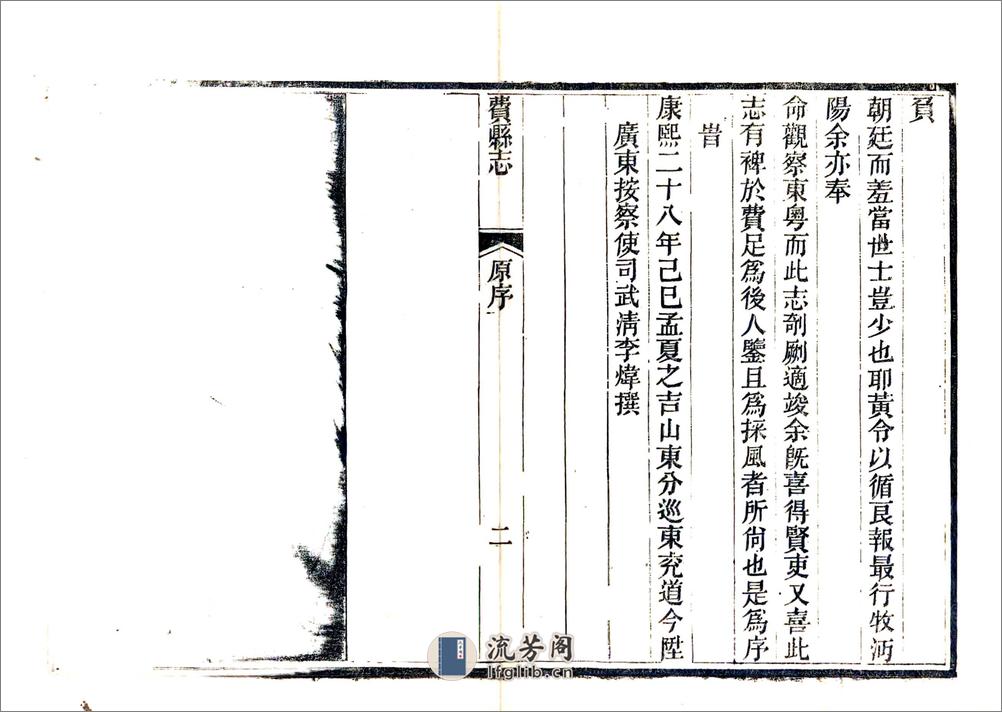 負
朝廷而羞當世士豈少也耶黃令以循良報最行牧沔
陽余亦奉
命觀察東粵而此志剞劂適竣余旣喜得賢吏又喜此
志有裨於費足爲後人鑒且爲採風者所尙也是爲序
旹
康熙二十八年己巳孟夏之吉山東分巡東兖道今陞
廣東按察使司武清李煒撰
費縣志
原序
二
流芳阁
lfglib.cn